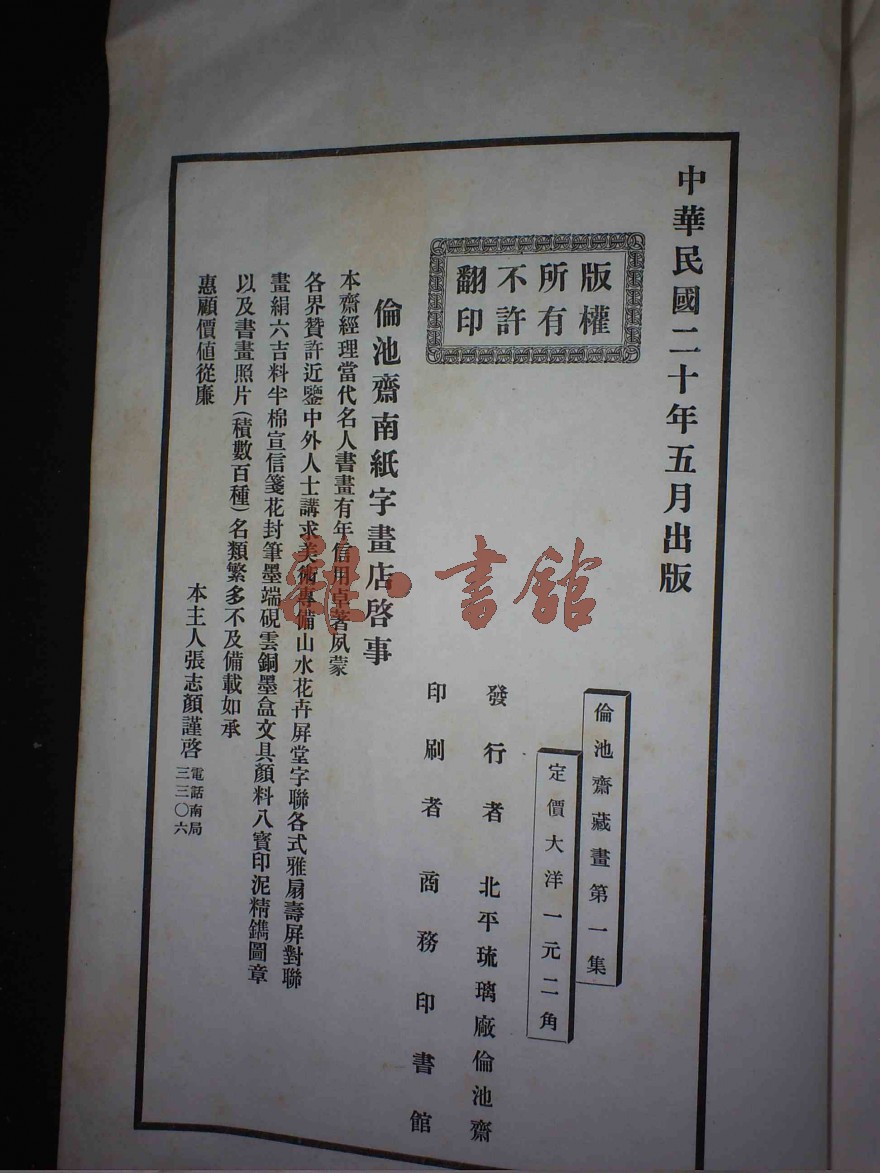 中華民國二十年五月出版
版權所有不許翻印
倫池齋藏畫第一集
定價大洋一元二角
發行者 北平琉璃廠倫池齋
印刷者 商務印書館
倫池齋南紙字畫店啓事
本齋經理當代名人書畫有年信用卓著夙蒙
各界贊許近鑒中外人士講求美術專備山水花卉屏堂字聯各式雅扇壽屏對聯
畫絹六吉料半棉宣信箋花封筆墨端硯雲銅墨盒文具顏料八寶印泥精鐫圖章
以及書畫照片(積數百種)名類繁多不及備載如承
惠顧價値從廉
本主人張志顏謹啓
電話南局
三三〇六
雜·書館